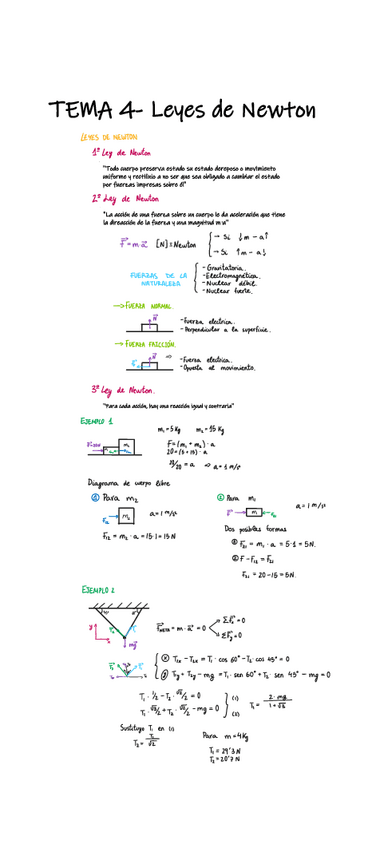 TEMA 4- Leyes de Newton
LEYES DE NEWTON
1ª Ley de Newton
"Todo cuerpo preserva estado su estado dereposo o movimiento
uniforme y rectilíio a no ser que sea obligado a cambiar el estado
por fuerzas impresas sobre él"
2ª Ley de Newton
"La acción de una fuerza sobre un cuerpo le da aceleración que tiene
la direacción de la fuerza y una magnitud m·a"
F = m·a [N] = Newton
→ Si ↓m - a↑
→ Si ↑m - a↓
FUERZAS DE LA
NATURALEZA
- Gravitatoria.
- Electromagnética.
- Nuclear débil.
- Nuclear fuerte.
→ FUERZA NORMAL.
N
- Fuerza eléctrica.
- Perpendicular a la superficie.
→ FUERZA FRICCIÓN.
N
⇒ - Fuerza eléctrica.
- Opuesta al movimiento.
3ª Ley de Newton.
"Para cada acción, hay una reacción igual y contraria"
EJEMPLO 1
m₁ = 5 Kg m₂ = 15 Kg
F = (m₁ + m₂) · a
20 = (5 + 15) · a
20/20 = a ⇒ a = 1 m/s²
Diagrama de cuerpo libre
① Para m₂
m₂
a = 1 m/s²
F₁₂ = m₂ · a = 15·1 = 15 N
② Para m₁
m₁
a = 1 m/s²
Dos posibles formas
① F₂₁ = m₁ · a = 5·1 = 5N.
② F - F₁₂ = F₂₁
F₂₁ = 20 - 15 = 5N.
EJEMPLO 2
y
x
mg
F = m·a = 0
ΣFx = 0
ΣFy = 0
ⓧ T₁ₓ - T₂ₓ = T₁ · cos 60° - T₂ · cos 45° = 0
ⓨ T₁y + T₂y - mg = T₁ · sen 60° + T₂ · sen 45° - mg = 0
T₁ · 1/2 - T₂ · √2/2 = 0 (1)
T₁ · √3/2 + T₂ · √2/2 - mg = 0 (2)
T₁ = 2·mg / 1+√3
Sustituyo T₁ en (1)
T₂ = T₁/√2
Para m = 4Kg
T₁ = 29'3 N
T₂ = 20'7 N